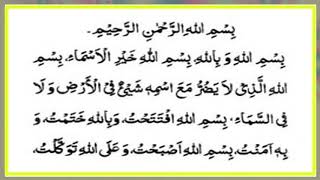 بِسْمِ اللهِ الرَّحْمٰنِ الرَّحِيْمِ۔
بِسْمِ اللهِ وَ بِاللهِ، بِسْمِ اللهِ خَيْرِ الْاَسْمَاءِ، بِسْمِ
اللهِ الَّذِىْ لَا يَضُرُّ مَعَ اسْمِهٖ شَىْءٌ فِى الْأَرْضِ وَ لَا
فِى السَّمَاءِ، بِسْمِ اللهِ افْتَتَحْتُ، وَبِاللهِ خَتَمْتُ، وَ
بِهٖ اٰمَنْتُ، بِسْمِ اللهِ اَصْبَحْتُ، وَ عَلَى اللهِ تَوَكَّلْتُ،